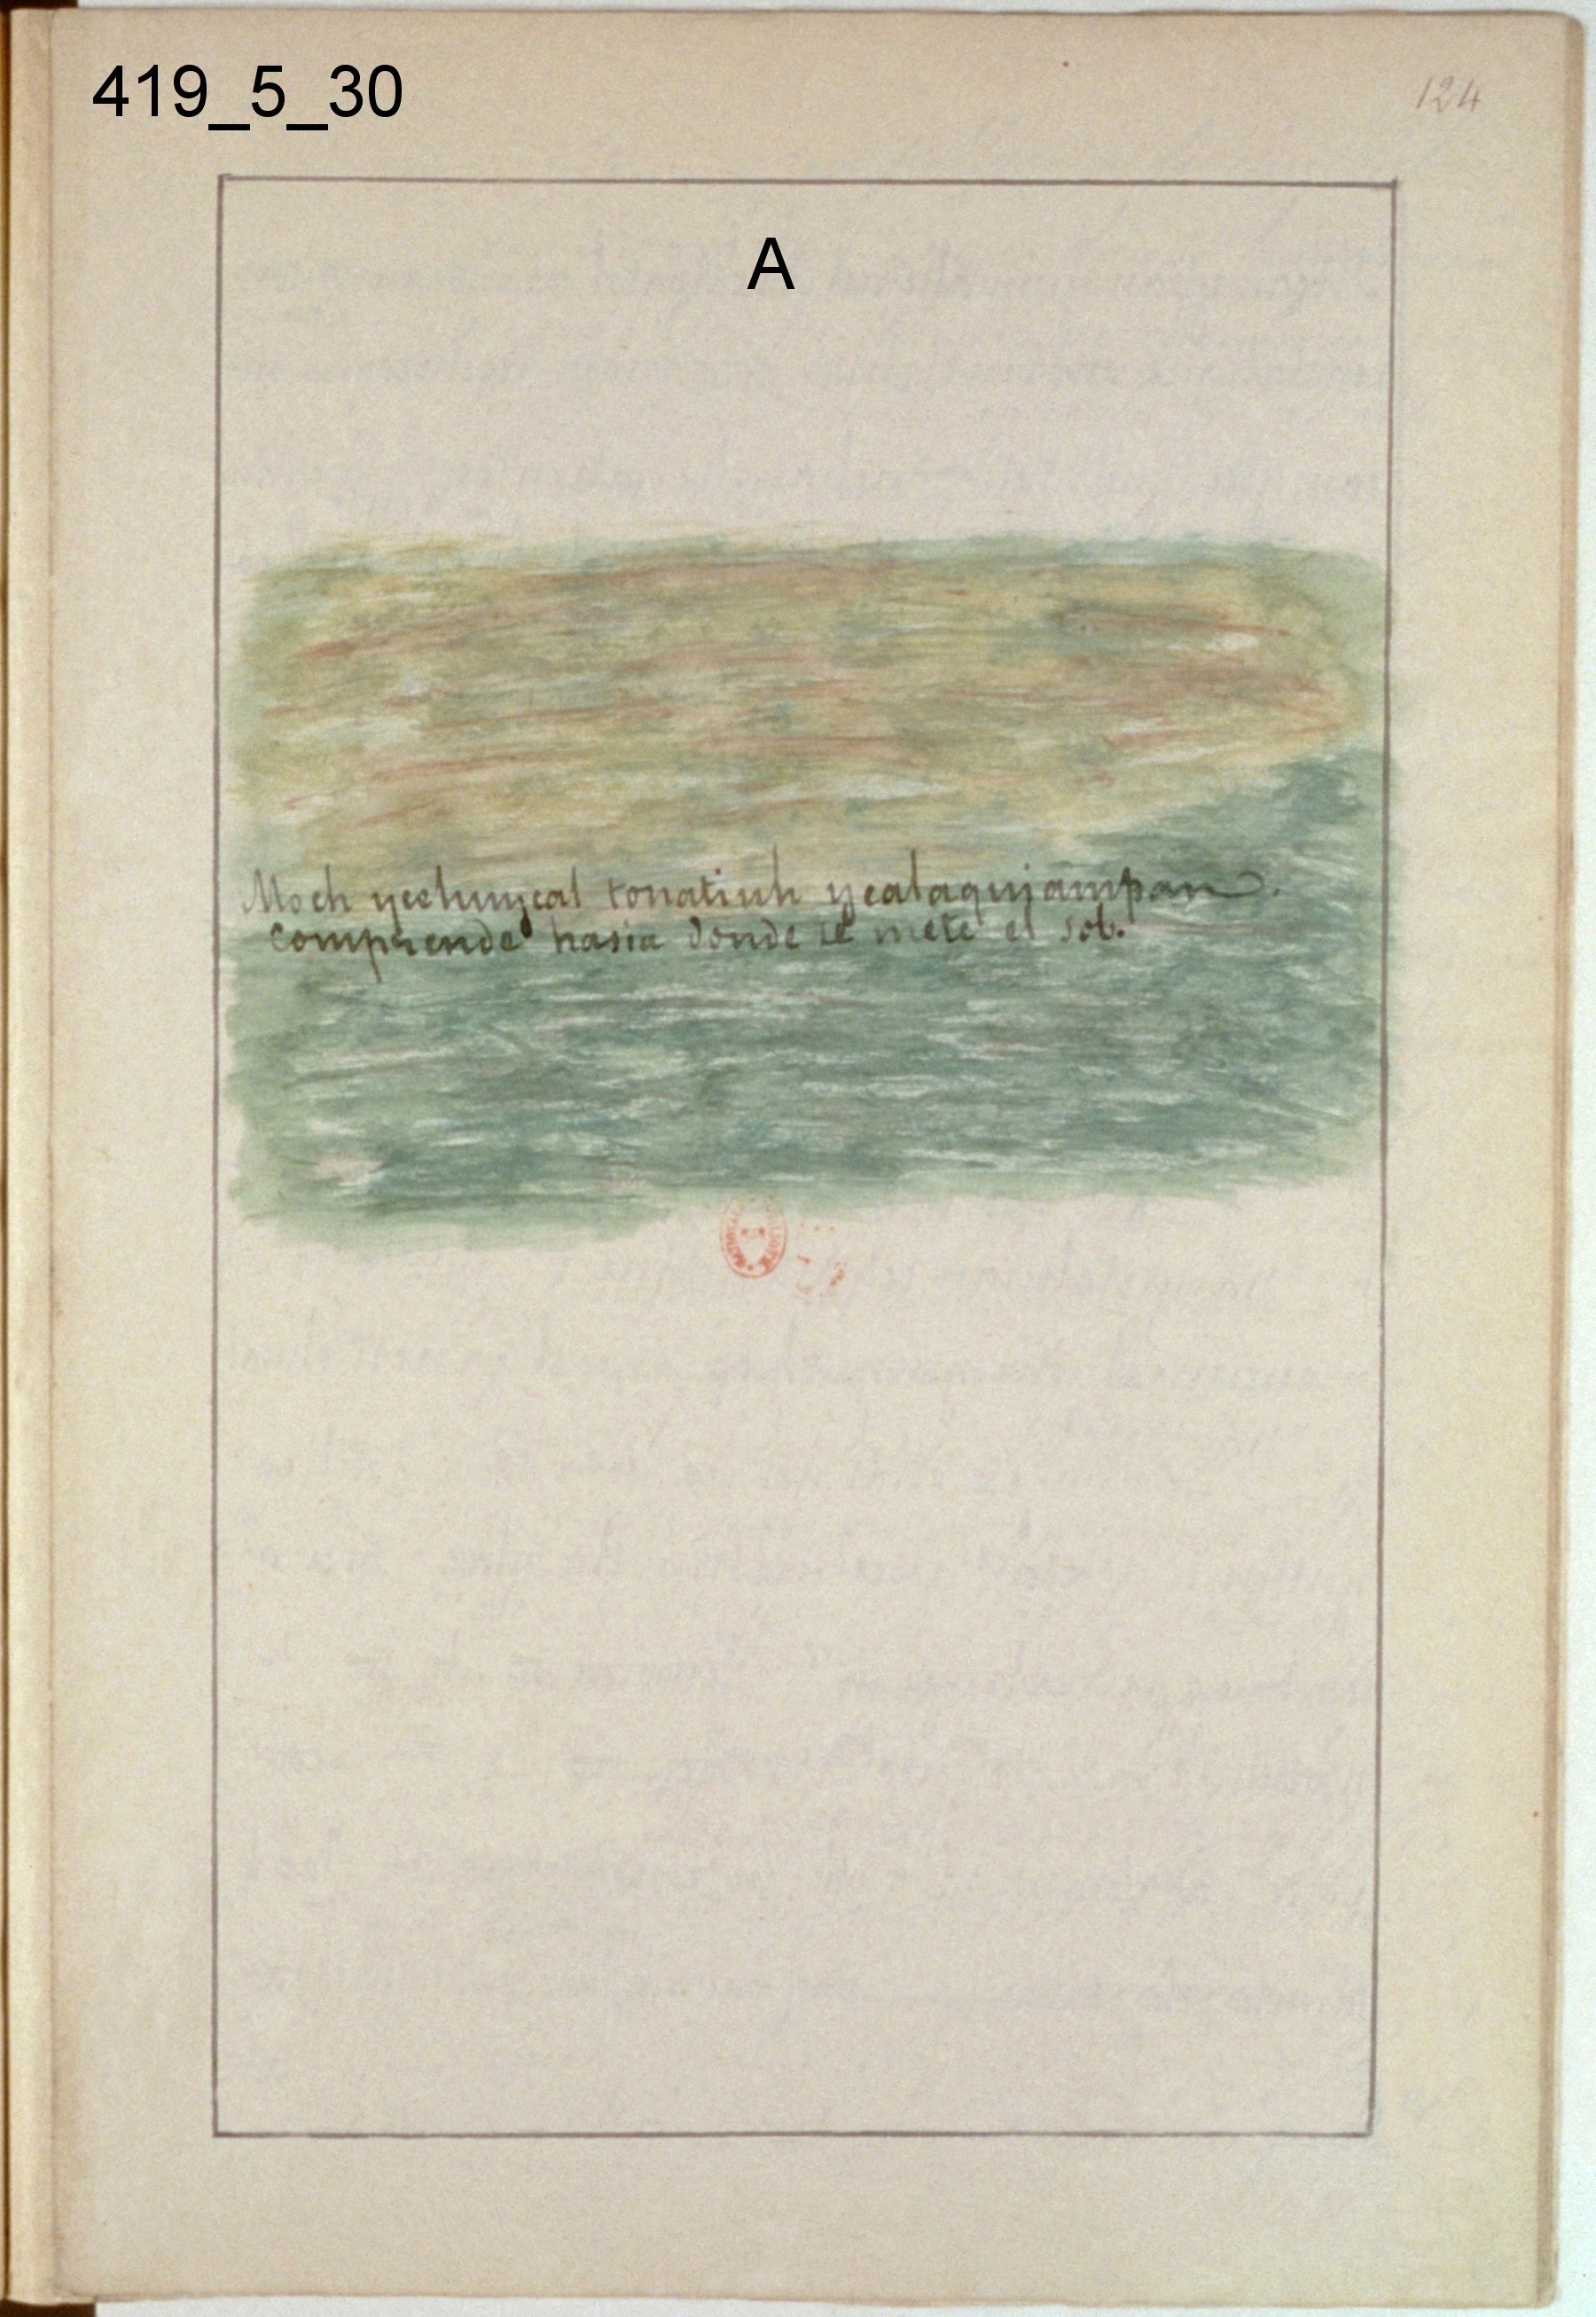 419_5_30
124
A
Moch yechuycal tonatiuh ycalaquiampan.
Comprende hasia donde se mete el sol.